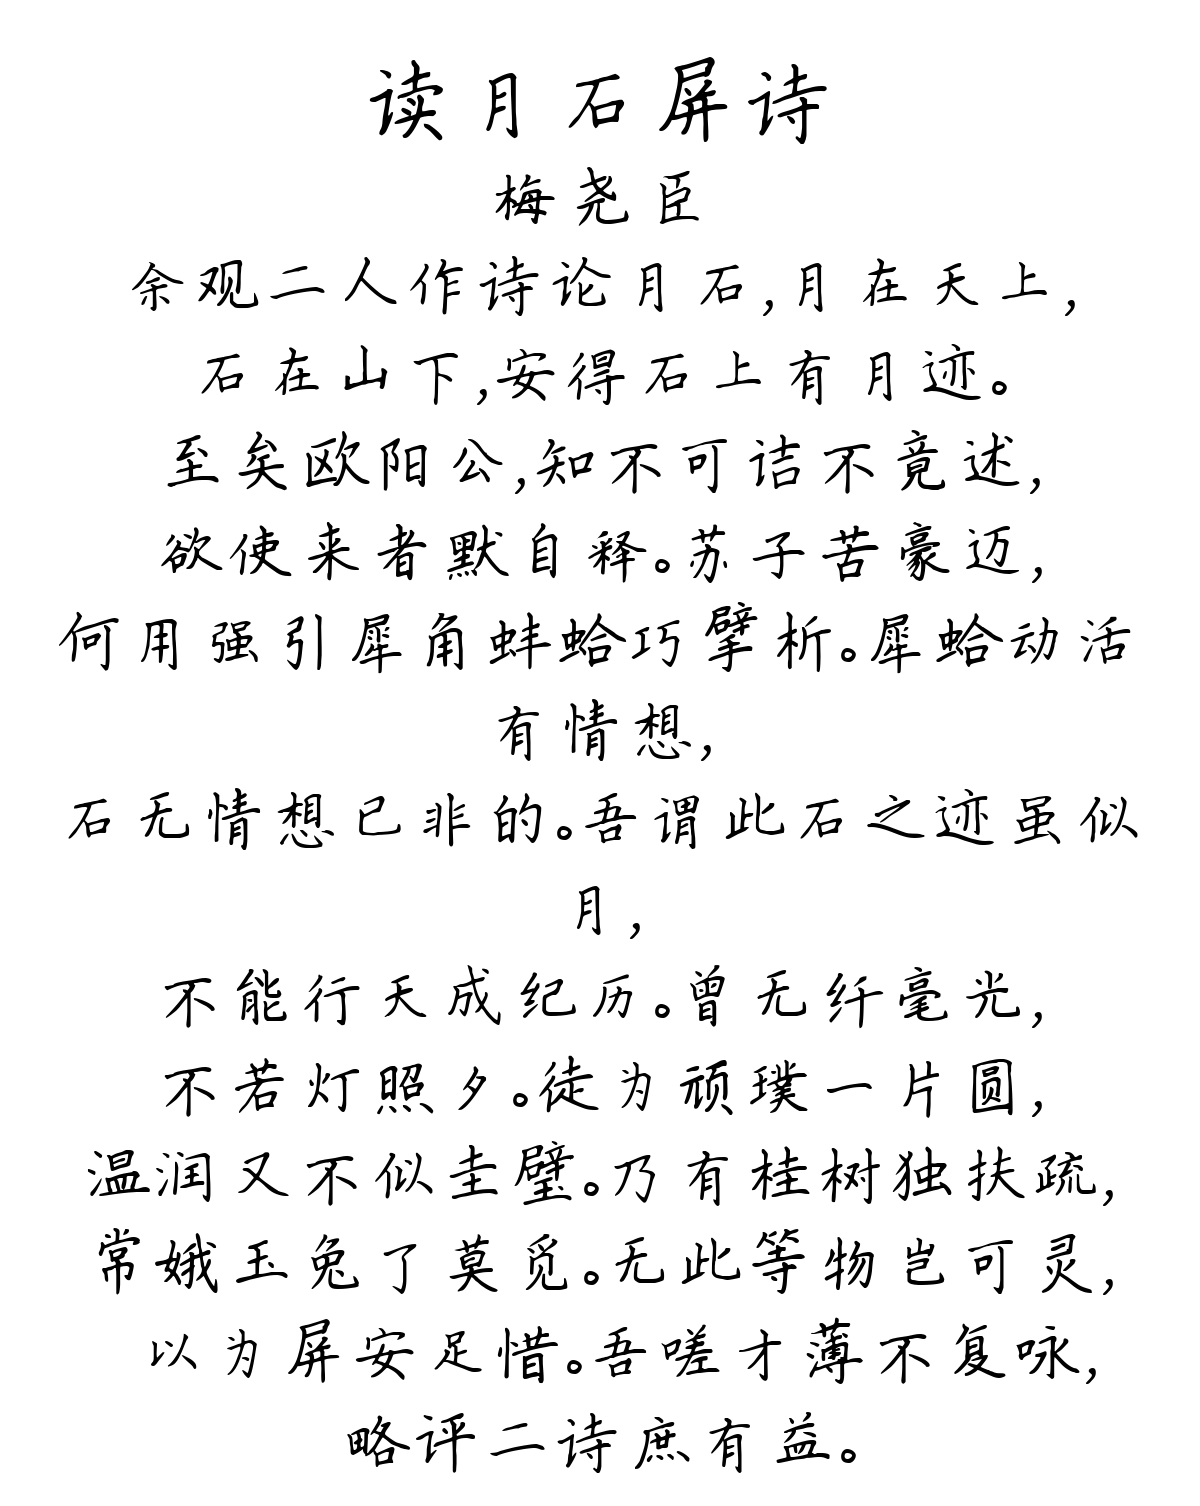 读月石屏诗
梅尧臣
余观二人作诗论月石,月在天上,
石在山下,安得石上有月迹。
至矣欧阳公,知不可诘不竟述,
欲使来者默自释。苏子苦豪迈,
何用强引犀角蚌蛤巧擘析。犀蛤动活
有情想,
石无情想已非的。吾谓此石之迹虽似
月,
不能行天成纪历。曾无纤毫光,
不若灯照夕。徒为顽璞一片圆,
温润又不似圭璧。乃有桂树独扶疏,
常娥玉兔了莫觅。无此等物岂可灵,
以为屏安足惜。吾嗟才薄不复咏,
略评二诗庶有益。